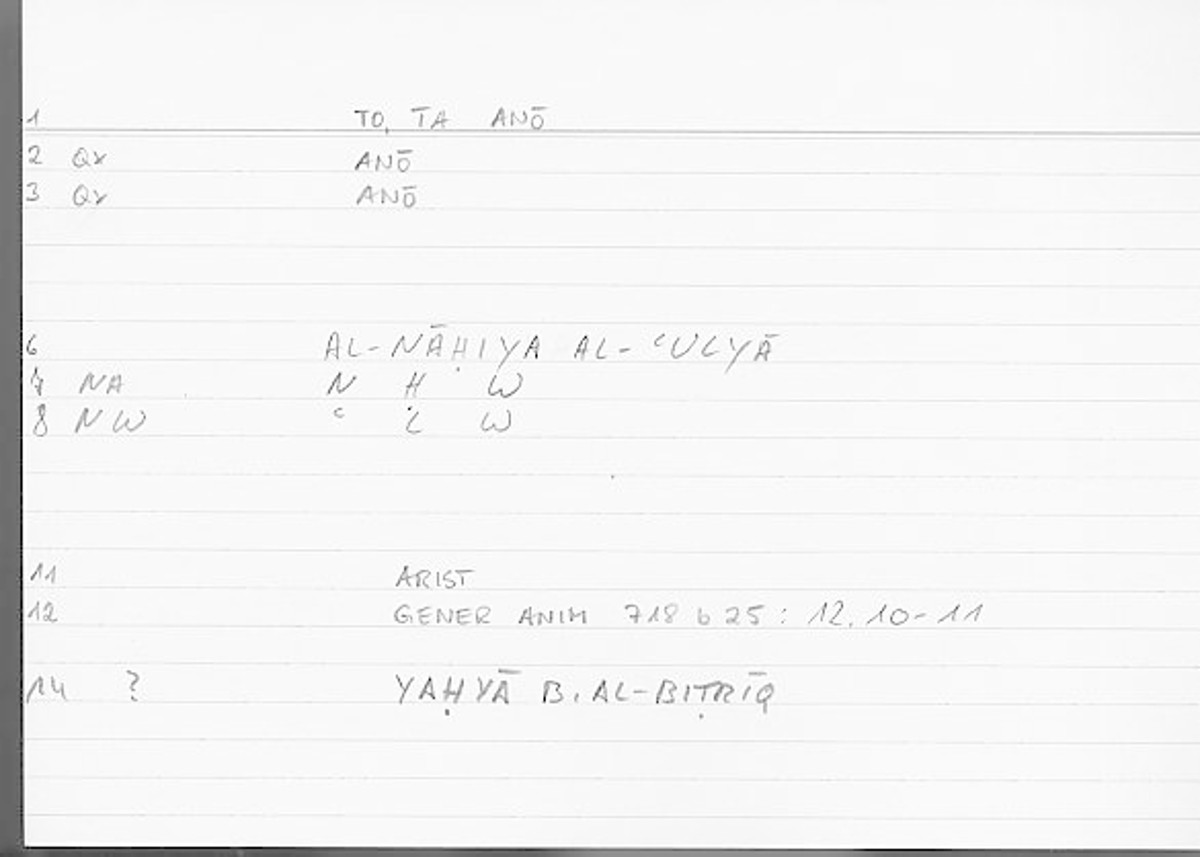 1 TO, TA ANŌ
2 Qv ANŌ
3 Qv ANŌ
6 AL-NĀḤIYA AL-ʿULYĀ
7 NA N Ḥ W
8 NW ʿ L W
11 ARIST
12 GENER ANIM 718 b 25 : 12.10-11
14 ? YAḤYĀ B. AL-BIṬRĪQ